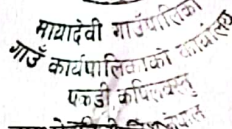 मायादेवी गाउँपालिका
गाउँ कार्यपालिकाको कार्यालय
पकडी कपिलवस्तु